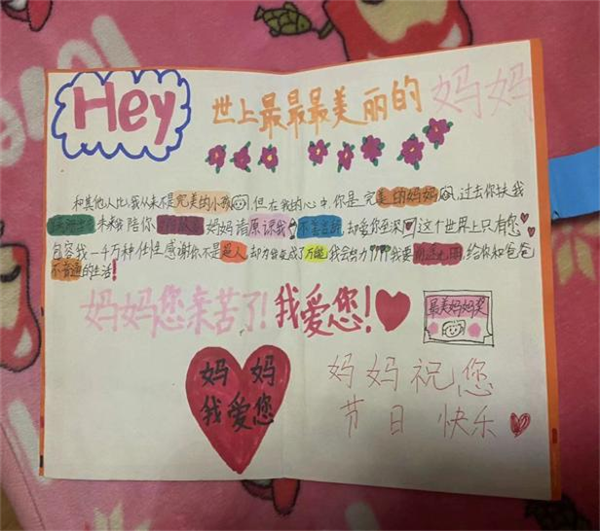 Hey
世上最最最美丽的妈妈
和其他人比,我从来不是完美的小孩,但在我的心中,你是完美的妈妈,过去你扶我
未来我陪你 妈妈请原谅我 不善言辞,却爱您至深 这个世界上只有您
包容我一千万种任性 感谢你不是超人,却为我变成了万能 我会努力 我要 给你和爸爸
不普通的生活!
妈妈您亲苦了!我爱您!
最美妈妈奖
妈妈
我爱您
妈妈祝您
节日快乐